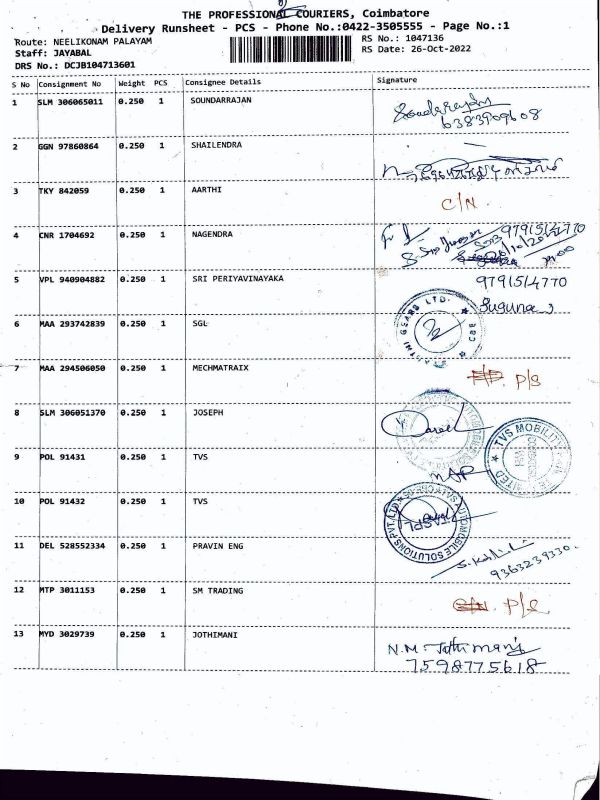 THE PROFESSIONAL COURIERS, Coimbatore
Delivery Runsheet - PCS - Phone No.:0422-3505555 - Page No.:1
Route: NEELIKONAM PALAYAM RS No.: 1047136
Staff: JAYABAL RS Date: 26-Oct-2022
DRS No.: DCJB104713601
S No Consignment No Weight PCS Consignee Details Signature
1 SLM 306065011 0.250 1 SOUNDARRAJAN
6383909608
2 GGN 97860864 0.250 1 SHAILENDRA
3 TKY 842059 0.250 1 AARTHI C/N.
4 CNR 1704692 0.250 1 NAGENDRA 9791514770
5 VPL 940904882 0.250 1 SRI PERIYAVINAYAKA 9791514770
Suguna
6 MAA 293742839 0.250 1 SGL GEARS LTD. CBE
7 MAA 294506050 0.250 1 MECHMATRAIX P/S
8 SLM 306051370 0.250 1 JOSEPH
9 POL 91431 0.250 1 TVS TVS MOBILITY
10 POL 91432 0.250 1 TVS TASPL AUTOMOBILE SOLUTIONS PVT. LTD
11 DEL 528552334 0.250 1 PRAVIN ENG
9363239330.
12 MTP 3011153 0.250 1 SM TRADING
13 MYD 3029739 0.250 1 JOTHIMANI N.M. Jothimani
7598775618